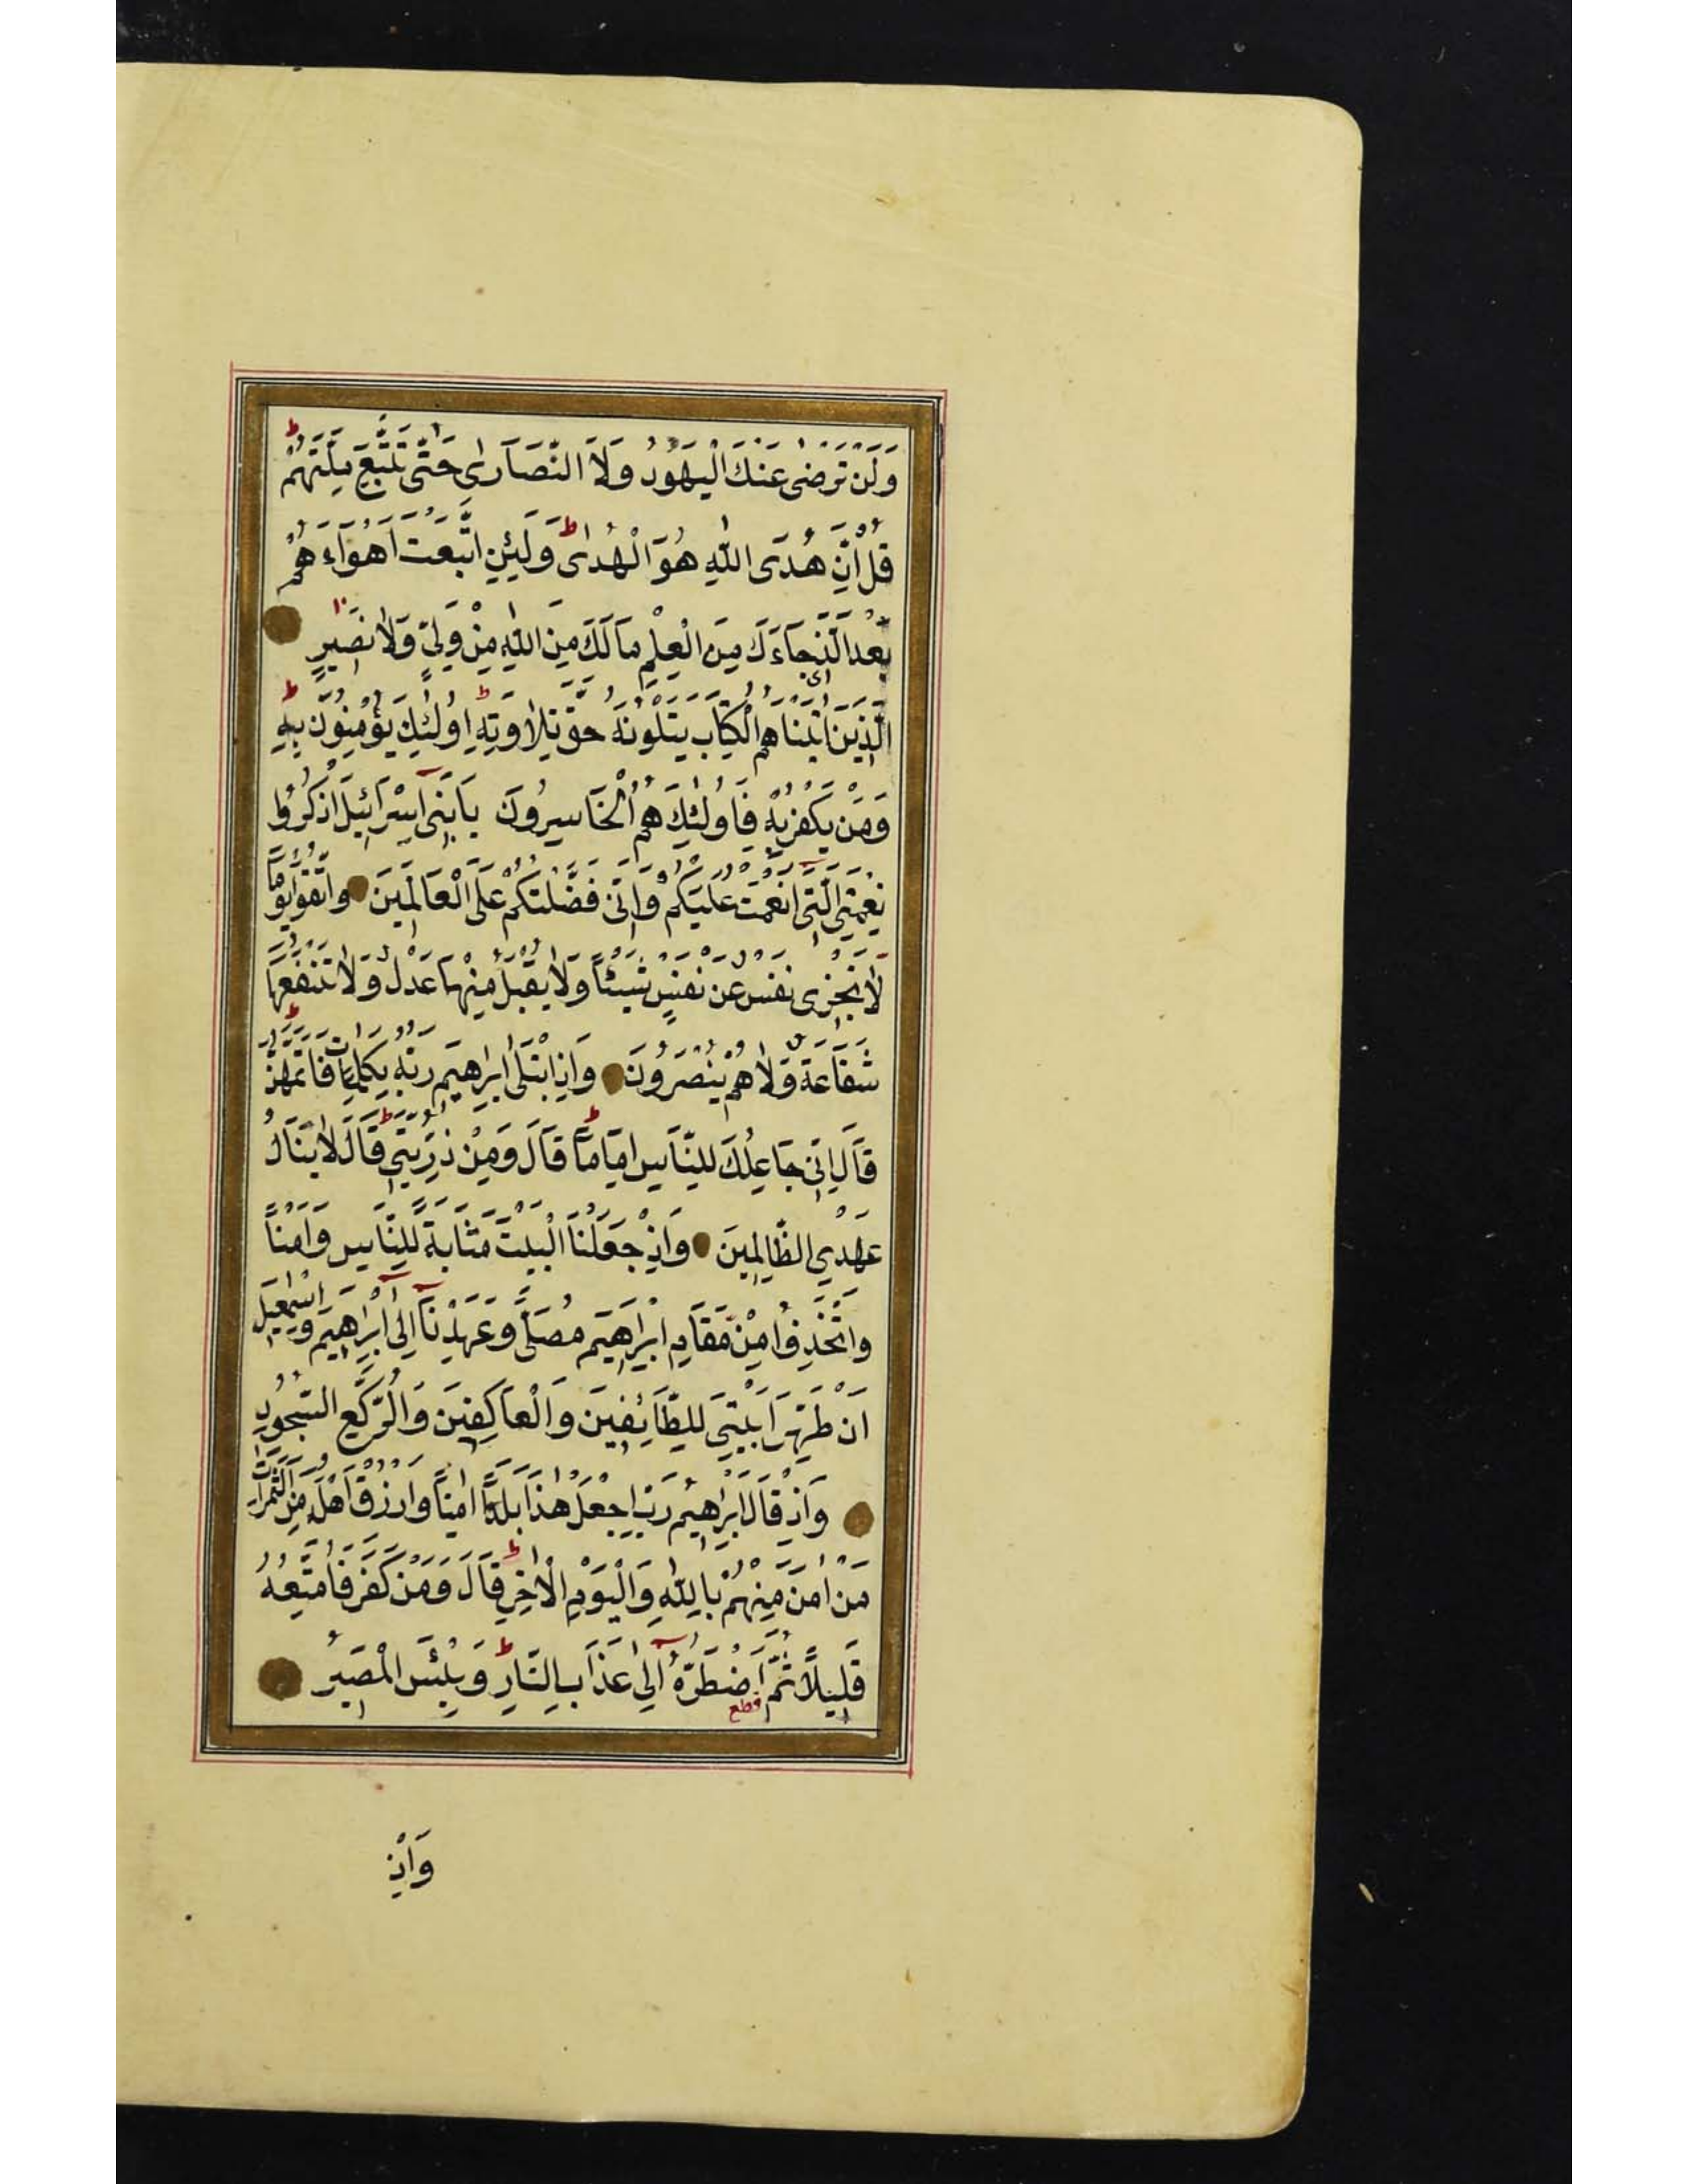 وَلَنْ تَرْضٰى عَنْكَ الْيَهُودُ وَلَا النَّصَارٰى حَتّٰى تَتَّبِعَ مِلَّتَهُمْ ط
قُلْ اِنَّ هُدَى اللّٰهِ هُوَ الْهُدٰى ط وَلَئِنِ اتَّبَعْتَ اَهْوَاءَهُمْ
بَعْدَ الَّذِى جَاءَكَ مِنَ الْعِلْمِ مَالَكَ مِنَ اللّٰهِ مِنْ وَلِىٍّ وَلَا نَصِيرٍ
اَلَّذِينَ اٰتَيْنَاهُمُ الْكِتَابَ يَتْلُونَهُ حَقَّ تِلَاوَتِهِ ط اُولٰئِكَ يُؤْمِنُونَ بِهِ ط
وَمَنْ يَكْفُرْ بِهِ فَاُولٰئِكَ هُمُ الْخَاسِرُونَ يَابَنِى اِسْرَائِيلَ اذْكُرُوا
نِعْمَتِىَ الَّتِى اَنْعَمْتُ عَلَيْكُمْ وَاَنِّى فَضَّلْتُكُمْ عَلَى الْعَالَمِينَ وَاتَّقُوا يَوْمًا
لَا تَجْزِى نَفْسٌ عَنْ نَفْسٍ شَيْئًا وَلَا يُقْبَلُ مِنْهَا عَدْلٌ وَلَا تَنْفَعُهَا
شَفَاعَةٌ وَلَا هُمْ يُنْصَرُونَ وَاِذِ ابْتَلٰى اِبْرَاهِيمَ رَبُّهُ بِكَلِمَاتٍ فَاَتَمَّهُنَّ ط
قَالَ اِنِّى جَاعِلُكَ لِلنَّاسِ اِمَامًا ط قَالَ وَمِنْ ذُرِّيَّتِى ط قَالَ لَا يَنَالُ
عَهْدِى الظَّالِمِينَ وَاِذْ جَعَلْنَا الْبَيْتَ مَثَابَةً لِلنَّاسِ وَاَمْنًا
وَاتَّخِذُوا مِنْ مَقَامِ اِبْرَاهِيمَ مُصَلًّى وَعَهِدْنَا اِلٰى اِبْرَاهِيمَ وَاِسْمٰعِيلَ
اَنْ طَهِّرَا بَيْتِىَ لِلطَّائِفِينَ وَالْعَاكِفِينَ وَالرُّكَّعِ السُّجُودِ
وَاِذْ قَالَ اِبْرَاهِيمُ رَبِّ اجْعَلْ هٰذَا بَلَدًا اٰمِنًا وَارْزُقْ اَهْلَهُ مِنَ الثَّمَرَاتِ
مَنْ اٰمَنَ مِنْهُمْ بِاللّٰهِ وَالْيَوْمِ الْاٰخِرِ ط قَالَ وَمَنْ كَفَرَ فَاُمَتِّعُهُ
قَلِيلًا ثُمَّ اَضْطَرُّهُ اِلٰى عَذَابِ النَّارِ ط وَبِئْسَ الْمَصِيرُ
قطع
وَاِذْ